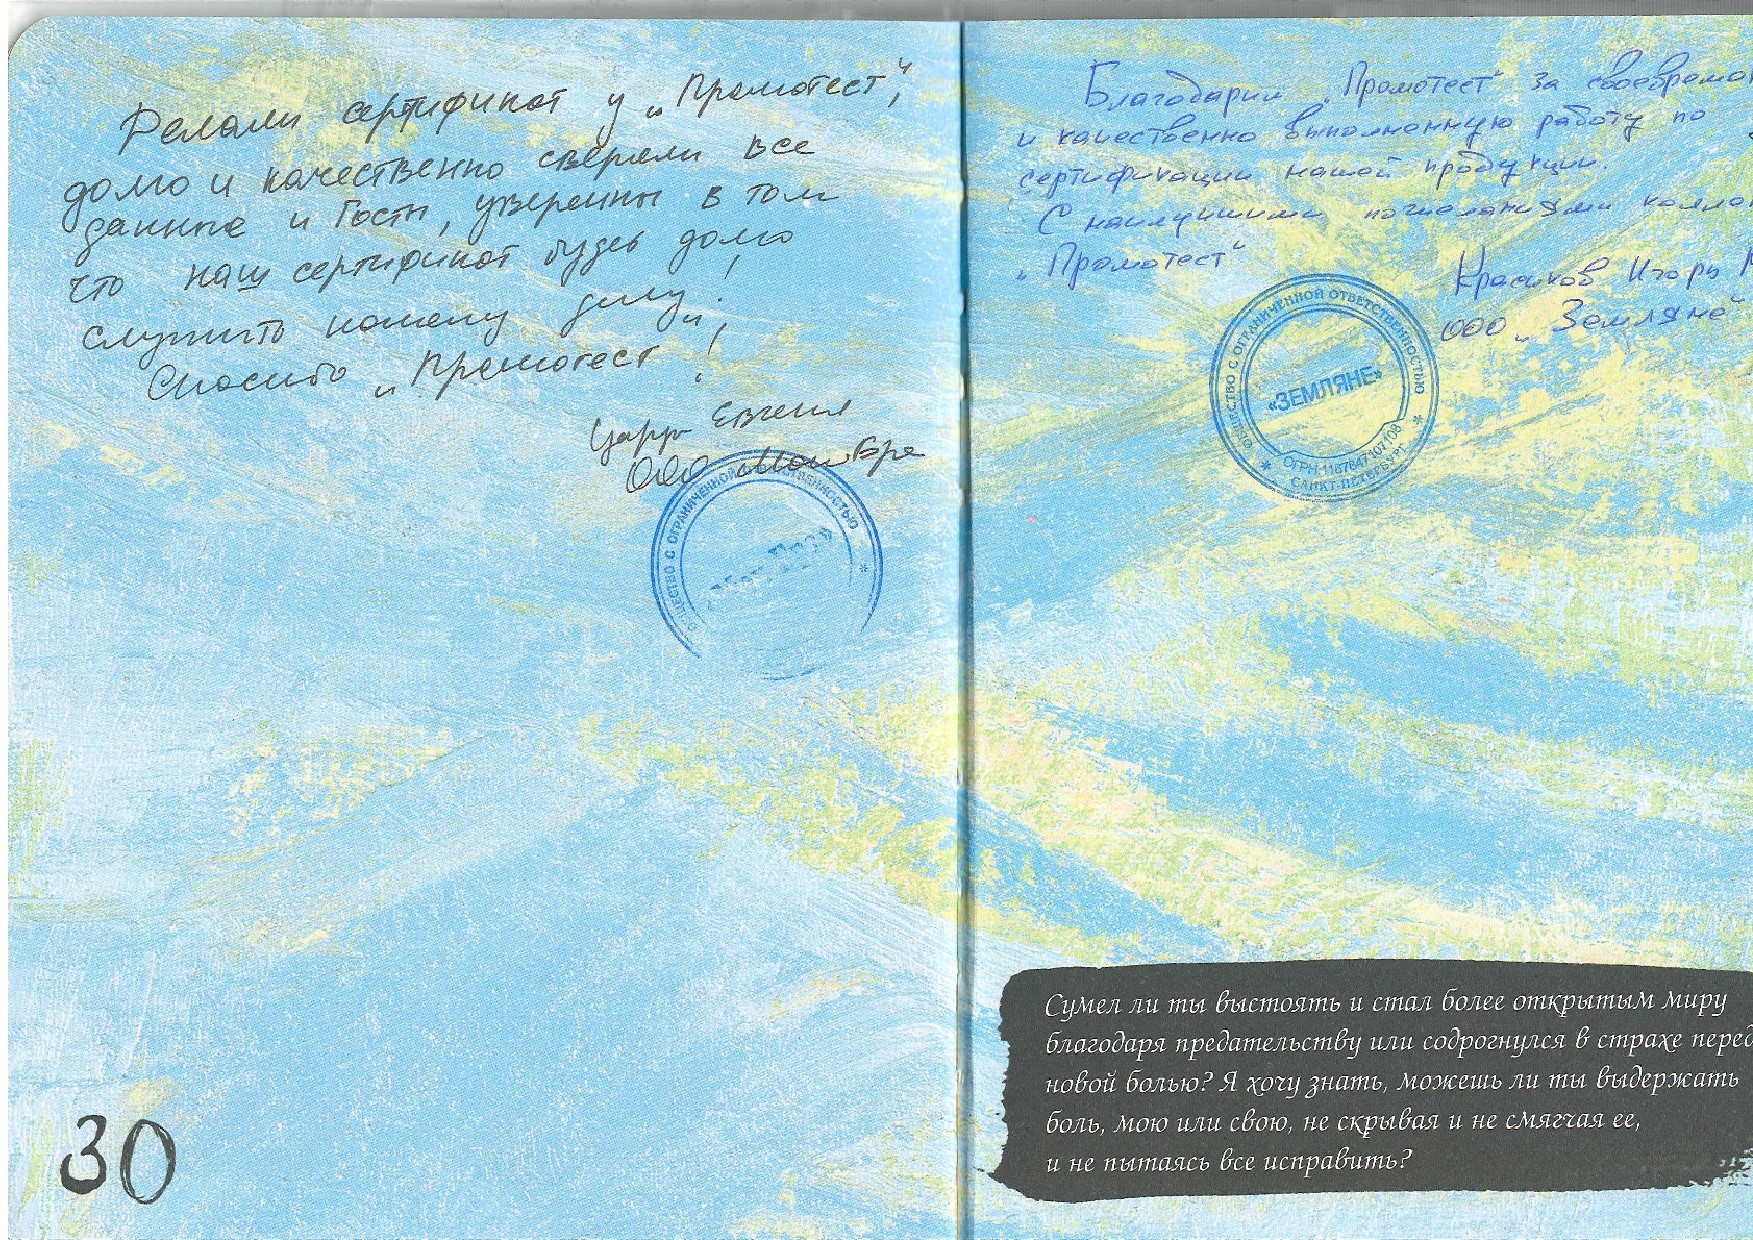 Делали сертификат у „Промотест",
долго и качественно сверяли все
данные и Госты, уверенны в том
что наш сертификат будеь долго
служить нашему делу!
Спасибо „Промотест"!
Евгения
ООО
ОБЩЕСТВО С ОГРАНИЧЕННОЙ ОТВЕТСТВЕННОСТЬЮ
30
Благодарим „Промотест" за своевремен
и качественно выполненную работу по
сертификации нашей продукции.
С наилучшими пожеланиями коллек
„Промотест"
Красиков Игорь
ООО „Земляне
ОБЩЕСТВО С ОГРАНИЧЕННОЙ ОТВЕТСТВЕННОСТЬЮ
«ЗЕМЛЯНЕ»
ОГРН:1167847107108
САНКТ-ПЕТЕРБУРГ
Сумел ли ты выстоять и стал более открытым миру
благодаря предательству или содрогнулся в страхе перед
новой болью? Я хочу знать, можешь ли ты выдержать
боль, мою или свою, не скрывая и не смягчая ее,
и не пытаясь все исправить?